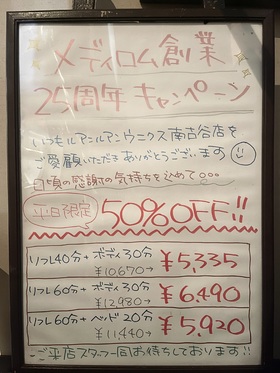 メディロム創業
25周年 キャンペーン
いつもルアンルアンウニクス南古谷店を
ご愛顧いただき ありがとうございます
日頃の感謝の気持ちを込めて。。。
平日限定 50%OFF!!
リフレ40分+ボディ30分
¥10,670→ ¥5,335
リフレ60分+ボディ30分
¥12,980→ ¥6,490
リフレ60分+ヘッド20分
¥11,440→ ¥5,920
ご来店スタッフ一同お待ちしております!!